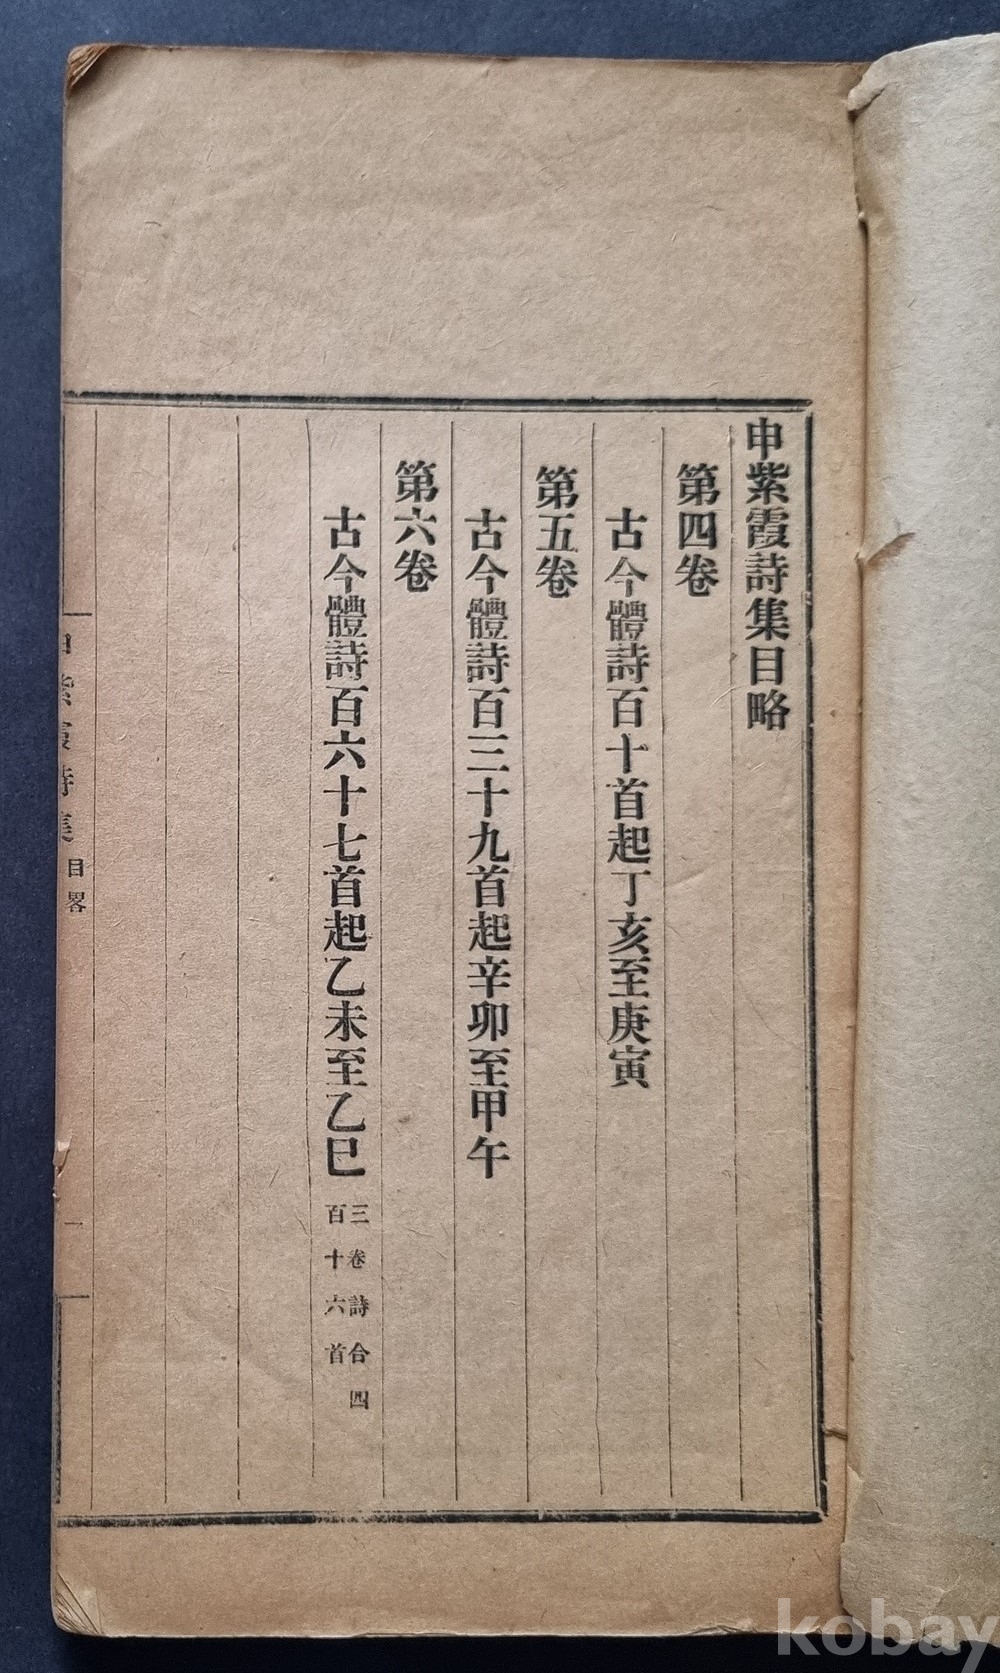 申紫霞詩集目略
第四卷
古今體詩百十首起丁亥至庚寅
第五卷
古今體詩百三十九首起辛卯至甲午
第六卷
古今體詩百六十七首起乙未至乙巳
三卷詩合四
百十六首
申紫霞詩集 目畧 一
kobay